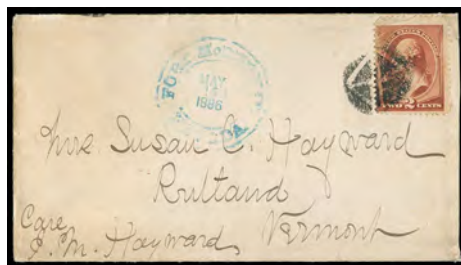 FORT
MAY
1886
TWO 2 CENTS
Mrs Susan C. Hayward
Rutland
Vermont
Care
S. M. Hayward